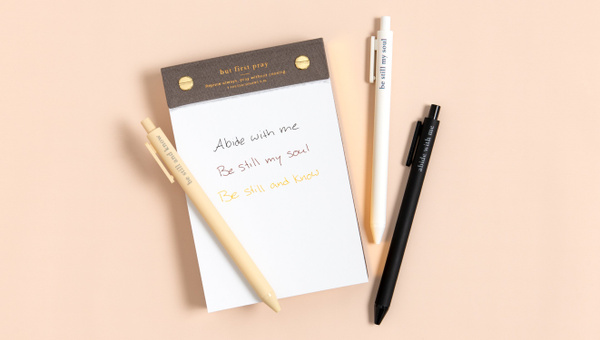 but first pray
Rejoice always, pray without ceasing
Abide with me
Be still my soul
Be still and know
be still and know
be still my soul
abide with me